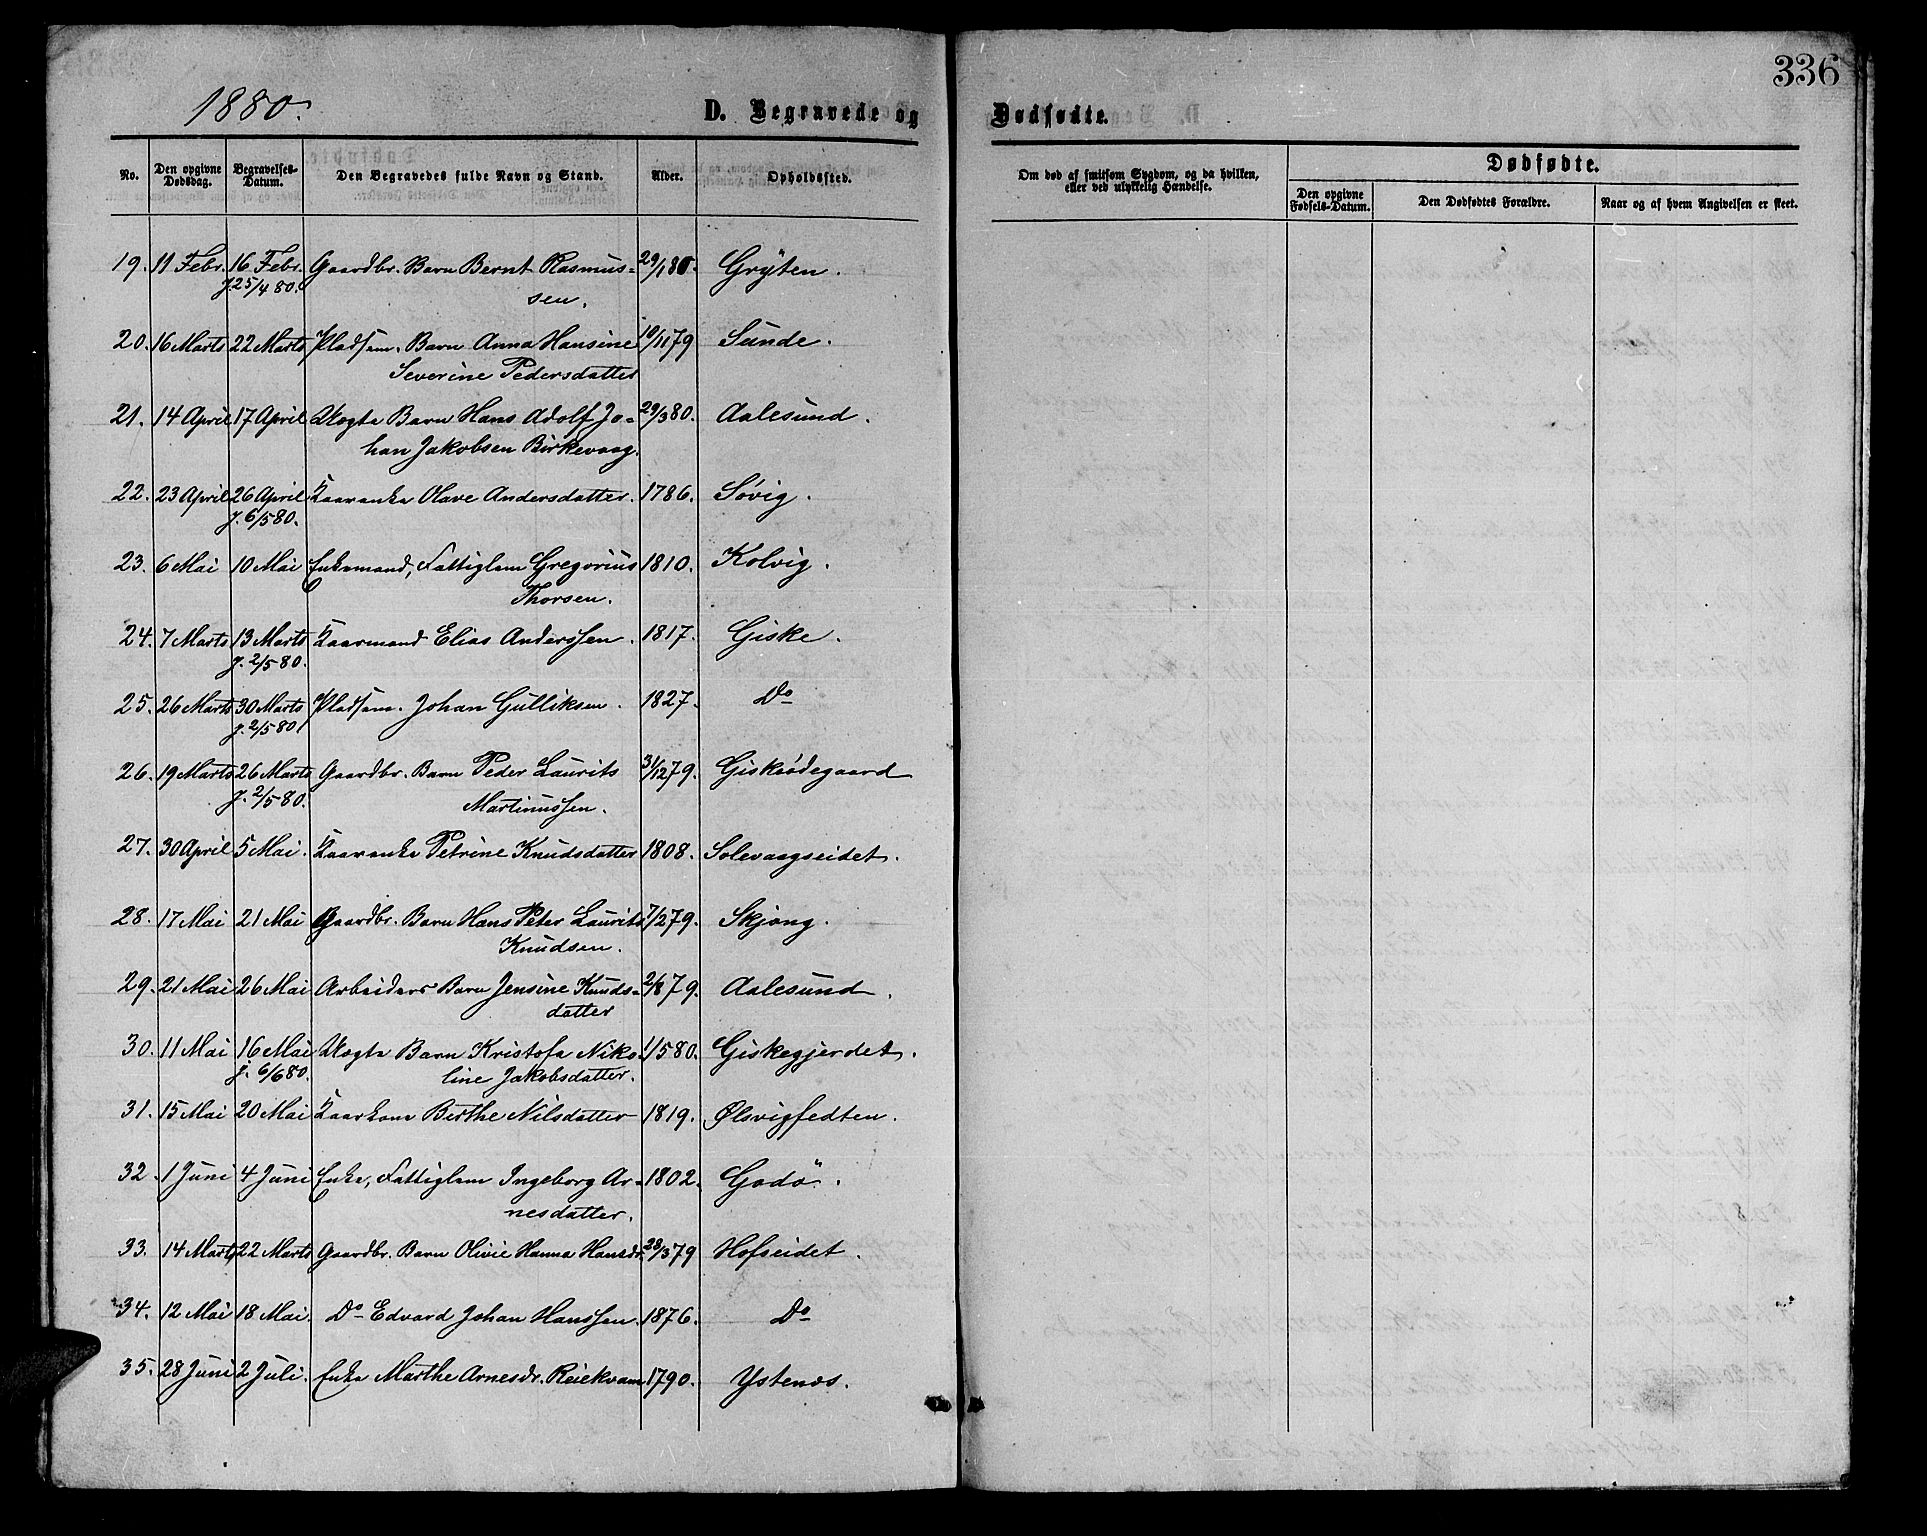 336
1880.
D. Begravede og Dødfødte.
No. Den opgivne Dødsdag. Begravelses-Datum. Den Begravedes fulde Navn og Stand. Alder. Opholdssted. Om død af smitsom Sygdom, og da hvilken, eller ved ulykkelig Hændelse. Dødfødte.
Den opgivne Fødsels-Datum. Den Dødfødtes Forældre. Naar og af hvem Angivelsen er skeet.
19. 11 Febr. 16 Febr. Gaardbr. Barn Bernt Rasmus- 29/1 80. Gryten.
J. 25/4 80. sen.
20. 16 Marts 22 Marts Pladsm. Barn Anna Hansine 10/11 79 Sunde.
Severine Pedersdatter
21. 14 April 17 April Uægte Barn Hans Adolf Jo- 29/3 80. Aalesund.
han Jakobsen Birkevaag.
22. 23 April 26 April Kaarenke Olave Andersdatter. 1786. Søvig.
J. 6/5 80.
23. 6 Mai 10 Mai Enkemand, Fattiglem Gregorius 1810. Kolvig.
Thorsen.
24. 7 Marts 13 Marts Kaarmand Elias Anderssen. 1817. Giske.
J. 2/5 80.
25. 26 Marts 30 Marts Pladsm. Johan Gulliksen. 1827. Do
J. 2/5 80
26. 19 Marts 26 Marts Gaardbr. Barn Peder Laurits 31/12 79. Giskeødegaard
J. 2/5 80. Martinussen.
27. 30 April 5 Mai. Kaarenke Petrine Knudsdatter 1808. Solevaagseidet.
28. 17 Mai 21 Mai Gaardbr. Barn Hans Peter Laurits 7/2 79. Skjong.
Knudsen.
29. 21 Mai 26 Mai Arbeiders Barn Jensine Knuds- 2/8 79. Aalesund.
datter
30. 11 Mai 16 Mai Uægte Barn Kristofa Niko- 1/5 80. Giskegjerdet.
J. 6/6 80. line Jakobsdatter.
31. 15 Mai 20 Mai Kaarkone Berthe Nilsdatter 1819. Ølsvigfedten.
32. 1 Juni 4 Juni Enke, Fattiglem Ingeborg Ar- 1802. Godö.
nesdatter.
33. 14 Marts 22 Marts Gaardbr. Barn Olivie Hanna Hansdr. 28/3 79 Hofseidet.
34. 12 Mai 18 Mai. Do Edvard Johan Hanssen. 1876. Do
35. 28 Juni 2 Juli. Enke Marthe Arnesdr. Reiekvam 1790. Ystenes.